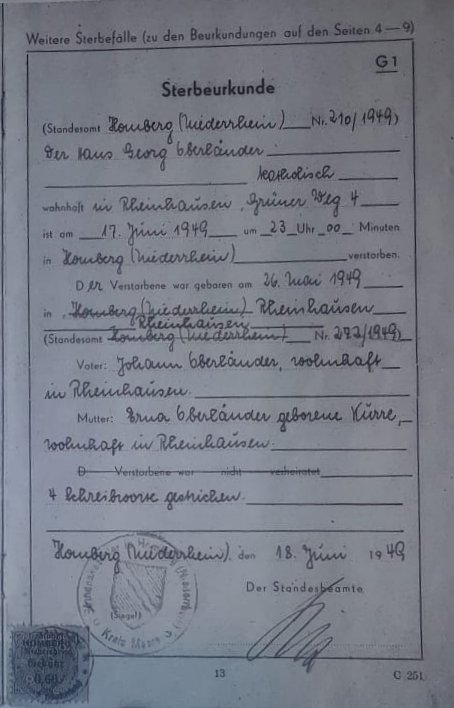 Weitere Sterbefälle (zu den Beurkundungen auf den Seiten 4—9)
G 1
Sterbeurkunde
(Standesamt Homberg (Niederrhein) Nr. 210/1949)
Der Hans Georg Oberländer
katholisch
wohnhaft in Rheinhausen, Grüner Weg 4
ist am 17. Juni 1949 um 23 Uhr 00 Minuten
in Homberg (Niederrhein) verstorben.
Der Verstorbene war geboren am 26. Mai 1949
in Homberg (Niederrhein) Rheinhausen
Rheinhausen
(Standesamt Homberg (Niederrhein) Nr. 272/1949)
Vater: Johann Oberländer, wohnhaft
in Rheinhausen.
Mutter: Erna Oberländer geborene Kürre,
wohnhaft in Rheinhausen.
D Verstorbene war nicht verheiratet
4 Schreibworte gestrichen.
Homberg (Niederrhein), den 18. Juni 1949
Der Standesbeamte
(Siegel)
Kreis Moers
HOMBERG
Gebühr
0,60
13
C 251